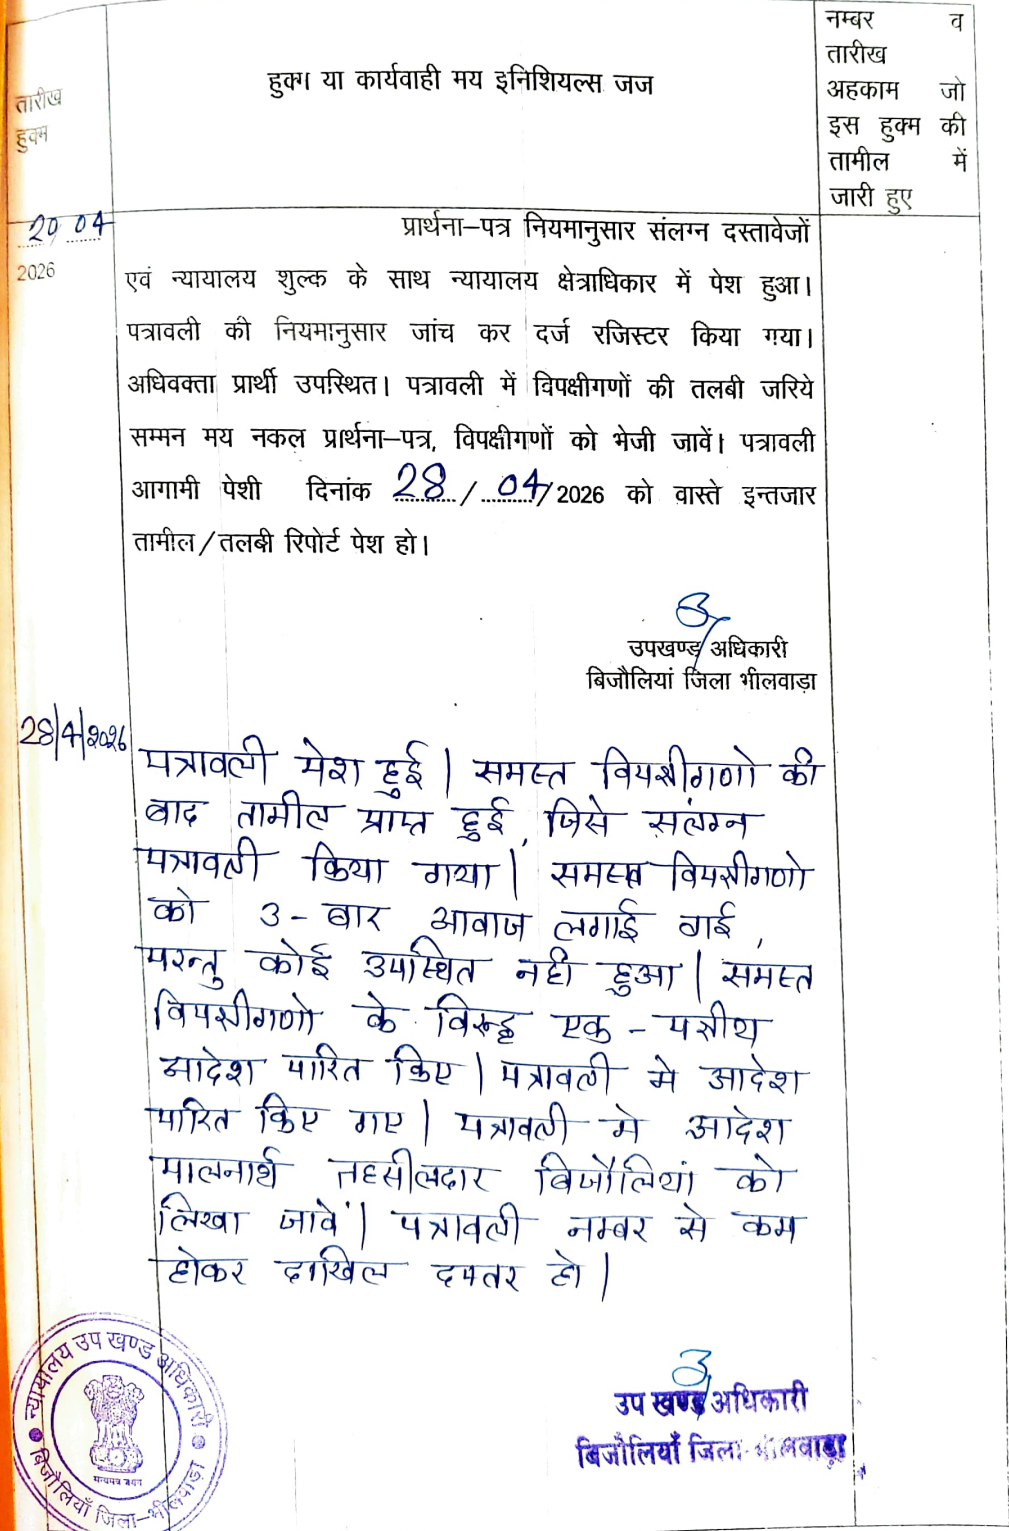 तारीख
हुक्म
हुक्म या कार्यवाही मय इनिशियल्स जज
नम्बर व
तारीख
अहकाम जो
इस हुक्म की
तामील में
जारी हुए
20 04
2026
प्रार्थना–पत्र नियमानुसार संलग्न दस्तावेजों
एवं न्यायालय शुल्क के साथ न्यायालय क्षेत्राधिकार में पेश हुआ।
पत्रावली की नियमानुसार जांच कर दर्ज रजिस्टर किया गया।
अधिवक्ता प्रार्थी उपस्थित। पत्रावली में विपक्षीगणों की तलबी जरिये
सम्मन मय नकल प्रार्थना–पत्र, विपक्षीगणों को भेजी जावें। पत्रावली
आगामी पेशी दिनांक 28/04/2026 को वास्ते इन्तजार
तामील/तलबी रिपोर्ट पेश हो।
उपखण्ड अधिकारी
बिजौलियां जिला भीलवाड़ा
28/4/2026
पत्रावली पेश हुई। समस्त विपक्षीगणो की
बाद तामील प्राप्त हुई, जिसे सलंग्न
पत्रावली किया गया। समस्त विपक्षीगणो
को 3-बार आवाज लगाई गई,
परन्तु कोई उपस्थित नही हुआ। समस्त
विपक्षीगणो के विरूद्ध एक-पक्षीय
आदेश पारित किए। पत्रावली मे आदेश
पारित किए गए। पत्रावली मे आदेश
पालनार्थ तहसीलदार बिजौलियां को
लिखा जावें। पत्रावली नम्बर से कम
होकर दाखिल दफ्तर हो।
उप खण्ड अधिकारी
बिजौलियाँ जिला-भीलवाड़ा
न्यायालय उप खण्ड अधिकारी
बिजौलियाँ जिला-भीलवाड़ा
सत्यमेव जयते